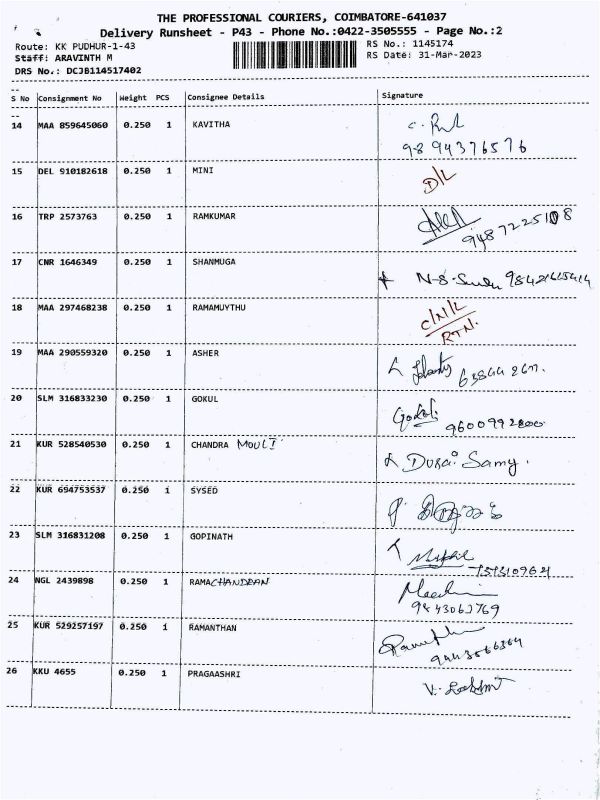 THE PROFESSIONAL COURIERS, COIMBATORE-641037
Delivery Runsheet - P43 - Phone No.:0422-3505555 - Page No.:2
Route: KK PUDHUR-1-43
RS No.: 1145174
Staff: ARAVINTH M
RS Date: 31-Mar-2023
DRS No.: DCJB114517402
--
S No Consignment No Weight PCS Consignee Details Signature
--
14 MAA 859645060 0.250 1 KAVITHA
9894376576
15 DEL 910182618 0.250 1 MINI D/L
16 TRP 2573763 0.250 1 RAMKUMAR
9487225108
17 CNR 1646349 0.250 1 SHANMUGA
18 MAA 297468238 0.250 1 RAMAMUYTHU C/N/L
RTN.
19 MAA 290559320 0.250 1 ASHER
20 SLM 316833230 0.250 1 GOKUL Gokul
9600992800
21 KUR 528540530 0.250 1 CHANDRA MOULI Durai Samy.
22 KUR 694753537 0.250 1 SYSED
23 SLM 316831208 0.250 1 GOPINATH
24 NGL 2439898 0.250 1 RAMACHANDRAN
9843063769
25 KUR 529257197 0.250 1 RAMANTHAN
9443566364
26 KKU 4655 0.250 1 PRAGAASHRI